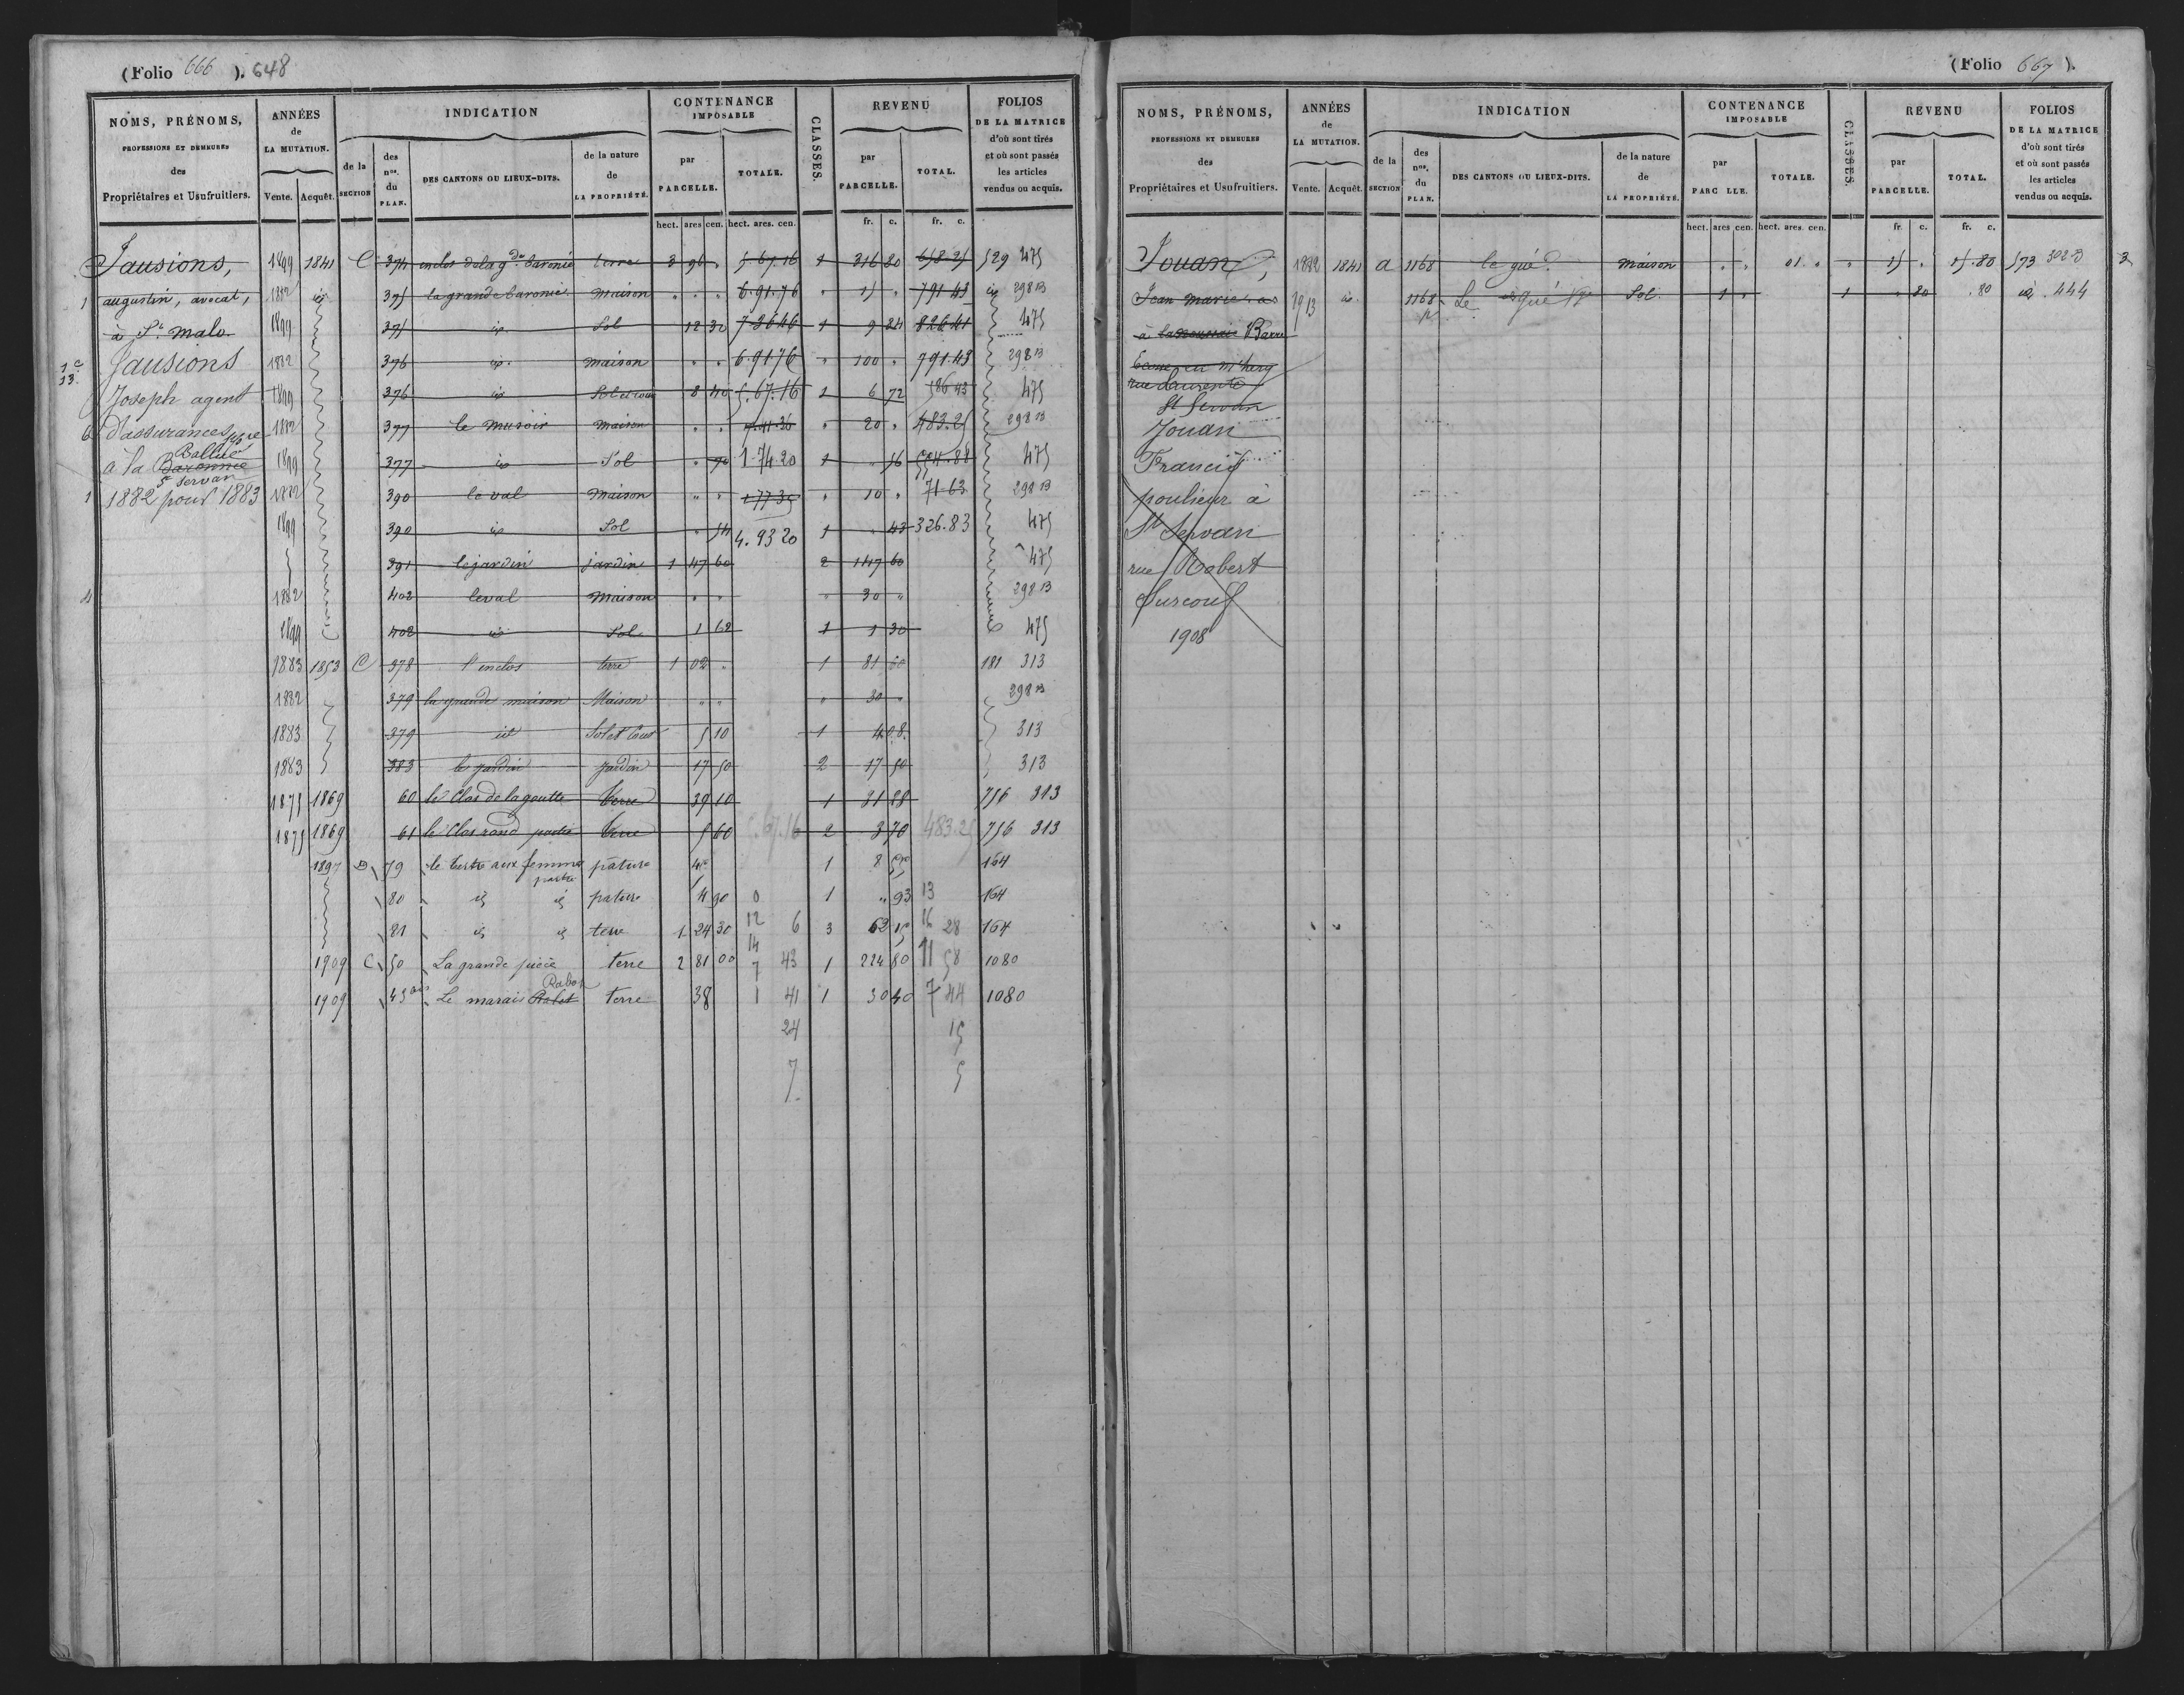 (Folio 666 ). 648
NOMS, PRÉNOMS, PROFESSIONS ET DEMEURES des Propriétaires et Usufruitiers.
ANNÉES de LA MUTATION. Vente. Acquêt.
INDICATION de la SECTION des nos. du PLAN. DES CANTONS OU LIEUX-DITS. de la nature de LA PROPRIÉTÉ.
CONTENANCE IMPOSABLE par PARCELLE. TOTALE. hect. ares cen. hect. ares. cen.
CLASSES.
REVENU par PARCELLE. TOTAL. fr. c. fr. c.
FOLIOS DE LA MATRICE d'où sont tirés et où sont passés les articles vendus ou acquis.
Jausions, 1899 1841 C 374 enclos de la gde baronie terre 3 96 " 5.67.16 1 316 80 658.25 529 475
1 augustin, avocat, 1882 id 375 la grande baronie maison " " " 6.91.76 " 15 " 791.43 id 298 B
à St. malo 1899 375 id Sol 12 30 7 36 46 1 9 84 826.41 475
Jausions 1882 376 id maison " " 6.91.76 " 100 " 791.43 298 B
Joseph agent 1899 376 id Sol et cour 8 40 5.67.16 1 6 72 475
6 d'assurances 1882 377 le musoir maison " " " 20 " 483.25 298 B
à la Baronnie Ballue 1899 377 id Sol " 70 1.74.20 1 " 56 475
St Servan
1 1882 pour 1883 1882 390 le val maison " " 1 77 35 " 10 " 71.63 298 B
1899 390 id Sol " 54 4.93 20 1 " 43 326.83 475
391 le jardin jardin 1 47 60 2 147 60 475
4 1882 402 le val maison " " " 30 " 298 B
1899 402 id Sol 1 62 1 1 30 475
1883 1853 C 378 l'enclos terre 1 02 " 1 81 60 181 313
1882 379 la grande maison Maison " " " 30 " 298 B
1883 379 id Sol et cour 5 10 1 4 08 313
1883 383 le jardin jardin 17 50 2 17 50 313
1875 1869 60 le Clos de la goutte terre 39 10 1 31 28 756 313
1875 1869 61 le Clos rond partie terre 5 60 2 3 70 483.25 756 313
1897 D 79 le tertre aux femmes partie pâture 1 8 55 164
80 id id pature 4 90 0 1 " 93 13 164
81 id id terre 1 24 30 12 6 3 62 15 16 28 164
1909 C 50 La grande pièce terre 2 81 00 14 7 43 1 224 80 11 58 1080
1909 43 bis Le marais Rabot Rabot terre 38 1 41 1 30 40 7 44 1080
24 15
7 5
(Folio 667 ).
NOMS, PRÉNOMS, PROFESSIONS ET DEMEURES des Propriétaires et Usufruitiers.
ANNÉES de LA MUTATION. Vente. Acquêt.
INDICATION de la SECTION des nos. du PLAN. DES CANTONS OU LIEUX-DITS. de la nature de LA PROPRIÉTÉ.
CONTENANCE IMPOSABLE par PARC LLE. TOTALE. hect. ares cen. hect. ares. cen.
CLASSES.
REVENU par PARCELLE. TOTAL. fr. c. fr. c.
FOLIOS DE LA MATRICE d'où sont tirés et où sont passés les articles vendus ou acquis.
Jouan, 1882 1841 a 1168 le gué maison " " 01. " " 15 " 15.80 573 302 B 3
Jean marie 1913 id. 1168 p Le Gué Sol 1 " 1 " 80 .80 id 444
à Barre
rue
St Servan
Jouan
Francis
poulieur à
St Servan
rue Robert
Surcouf
1908